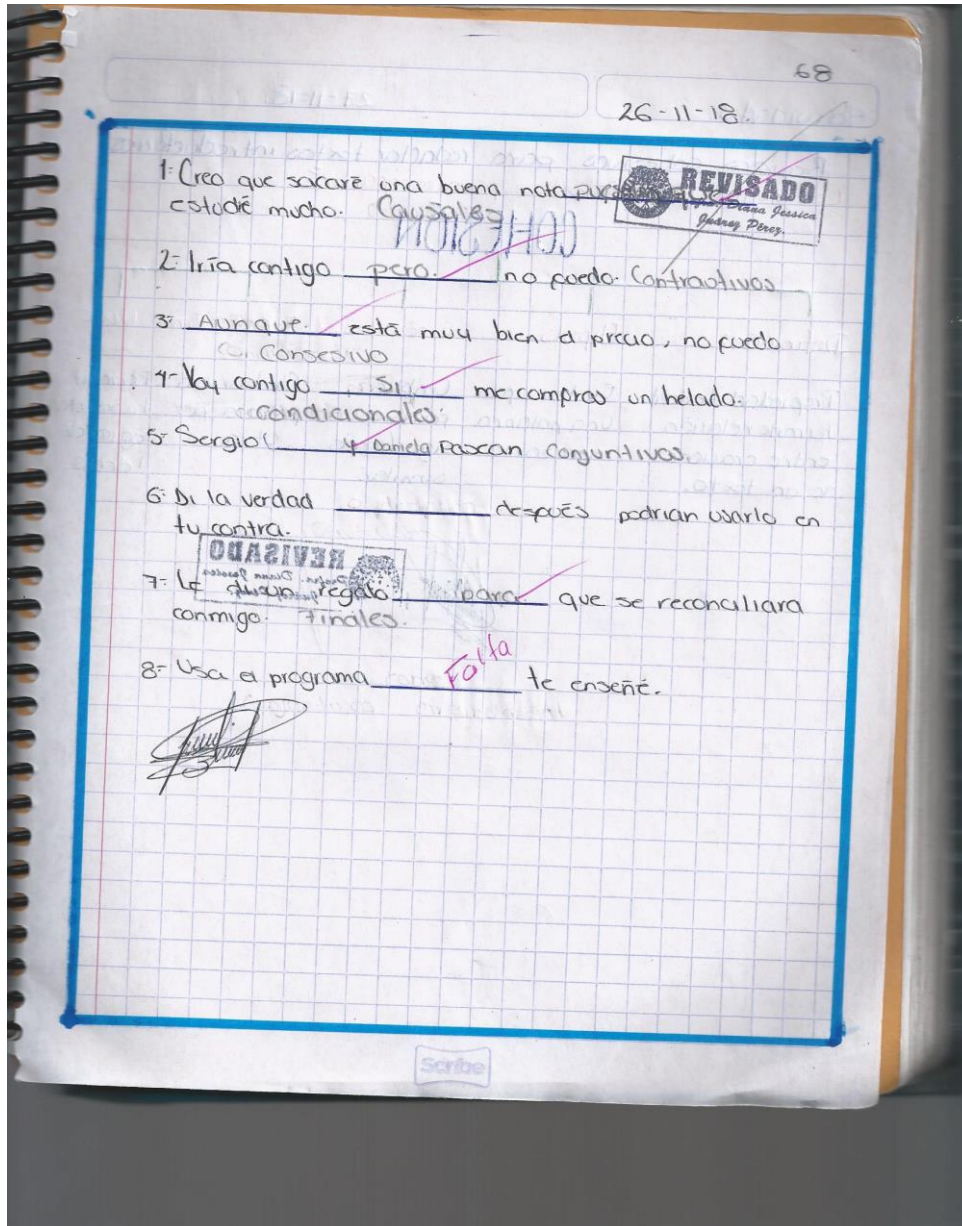 68
26-11-18.
1: Creo que sacaré una buena nota
REVISADO
Diana Jessica
Juárez Pérez.
estudié mucho. Causales
COHESIÓN
2- Iría contigo pero. no puedo. Contractivos
3- Aunque. está muy bien el precio, no puedo
Consesivo
4- Voy contigo si me compras un helado.
condicionales.
5- Sergio y Daniela Pascan Conjuntivas.
6- Di la verdad después podrian usarlo en
tu contra.
REVISADO
7- Le regalo para que se reconciliara
conmigo. Finales.
8- Usa el programa Falta te enseñé.
Scribe